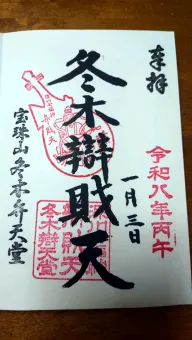 奉拝
令和八年丙午
一月三日
冬木辯財天
弁財天
冬木辯天堂
宝珠山冬木弁天堂